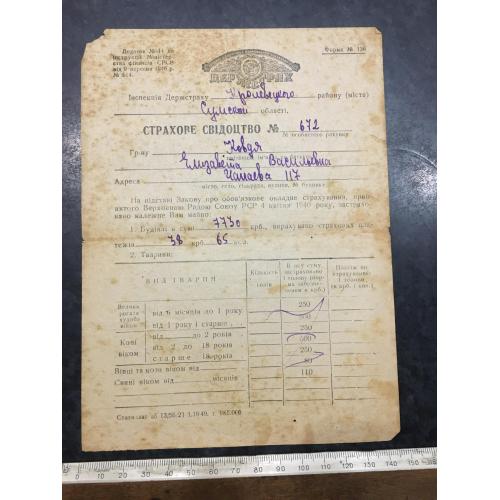 Додаток № 14 до
Інструкції Міністерства фінансів СРСР
№ 644.
Форма № 136
ДЕРЖСТРАХ
Інспекція Держстраху Кролевецкого району (міста)
Сумской області.
СТРАХОВЕ СВІДОЦТВО № 672
№ особового рахунку
Гр-ну Ковдя
Елизавета Васильевна
Адреса Чапаева 117
місто, село, сільрада, вулиця, № будинку
На підставі Закону про обов'язкове окладне страхування, прийнятого
Верховною Радою Союзу РСР 4 квітня 1940 року, застраховано
належне Вам майно
1. Будівлі в сумі 7730 крб., нараховано страхових платежів
38 крб. 65 коп.
2. Тварини:
ВИД ТВАРИН
Кількість голів
В яку суму застраховано 1 голову (норма забезпечення в крб.)
Платіж по страхуванню 1 голови (в крб. і коп.)
Велика рогата худоба віком
від 6 місяців до 1 року
250
від 1 року і старше
Коні віком
до 2 років
250
від 2 до 18 років
500
старше 18 років
250
Вівці та кози віком від
80
Свині віком від місяців
110